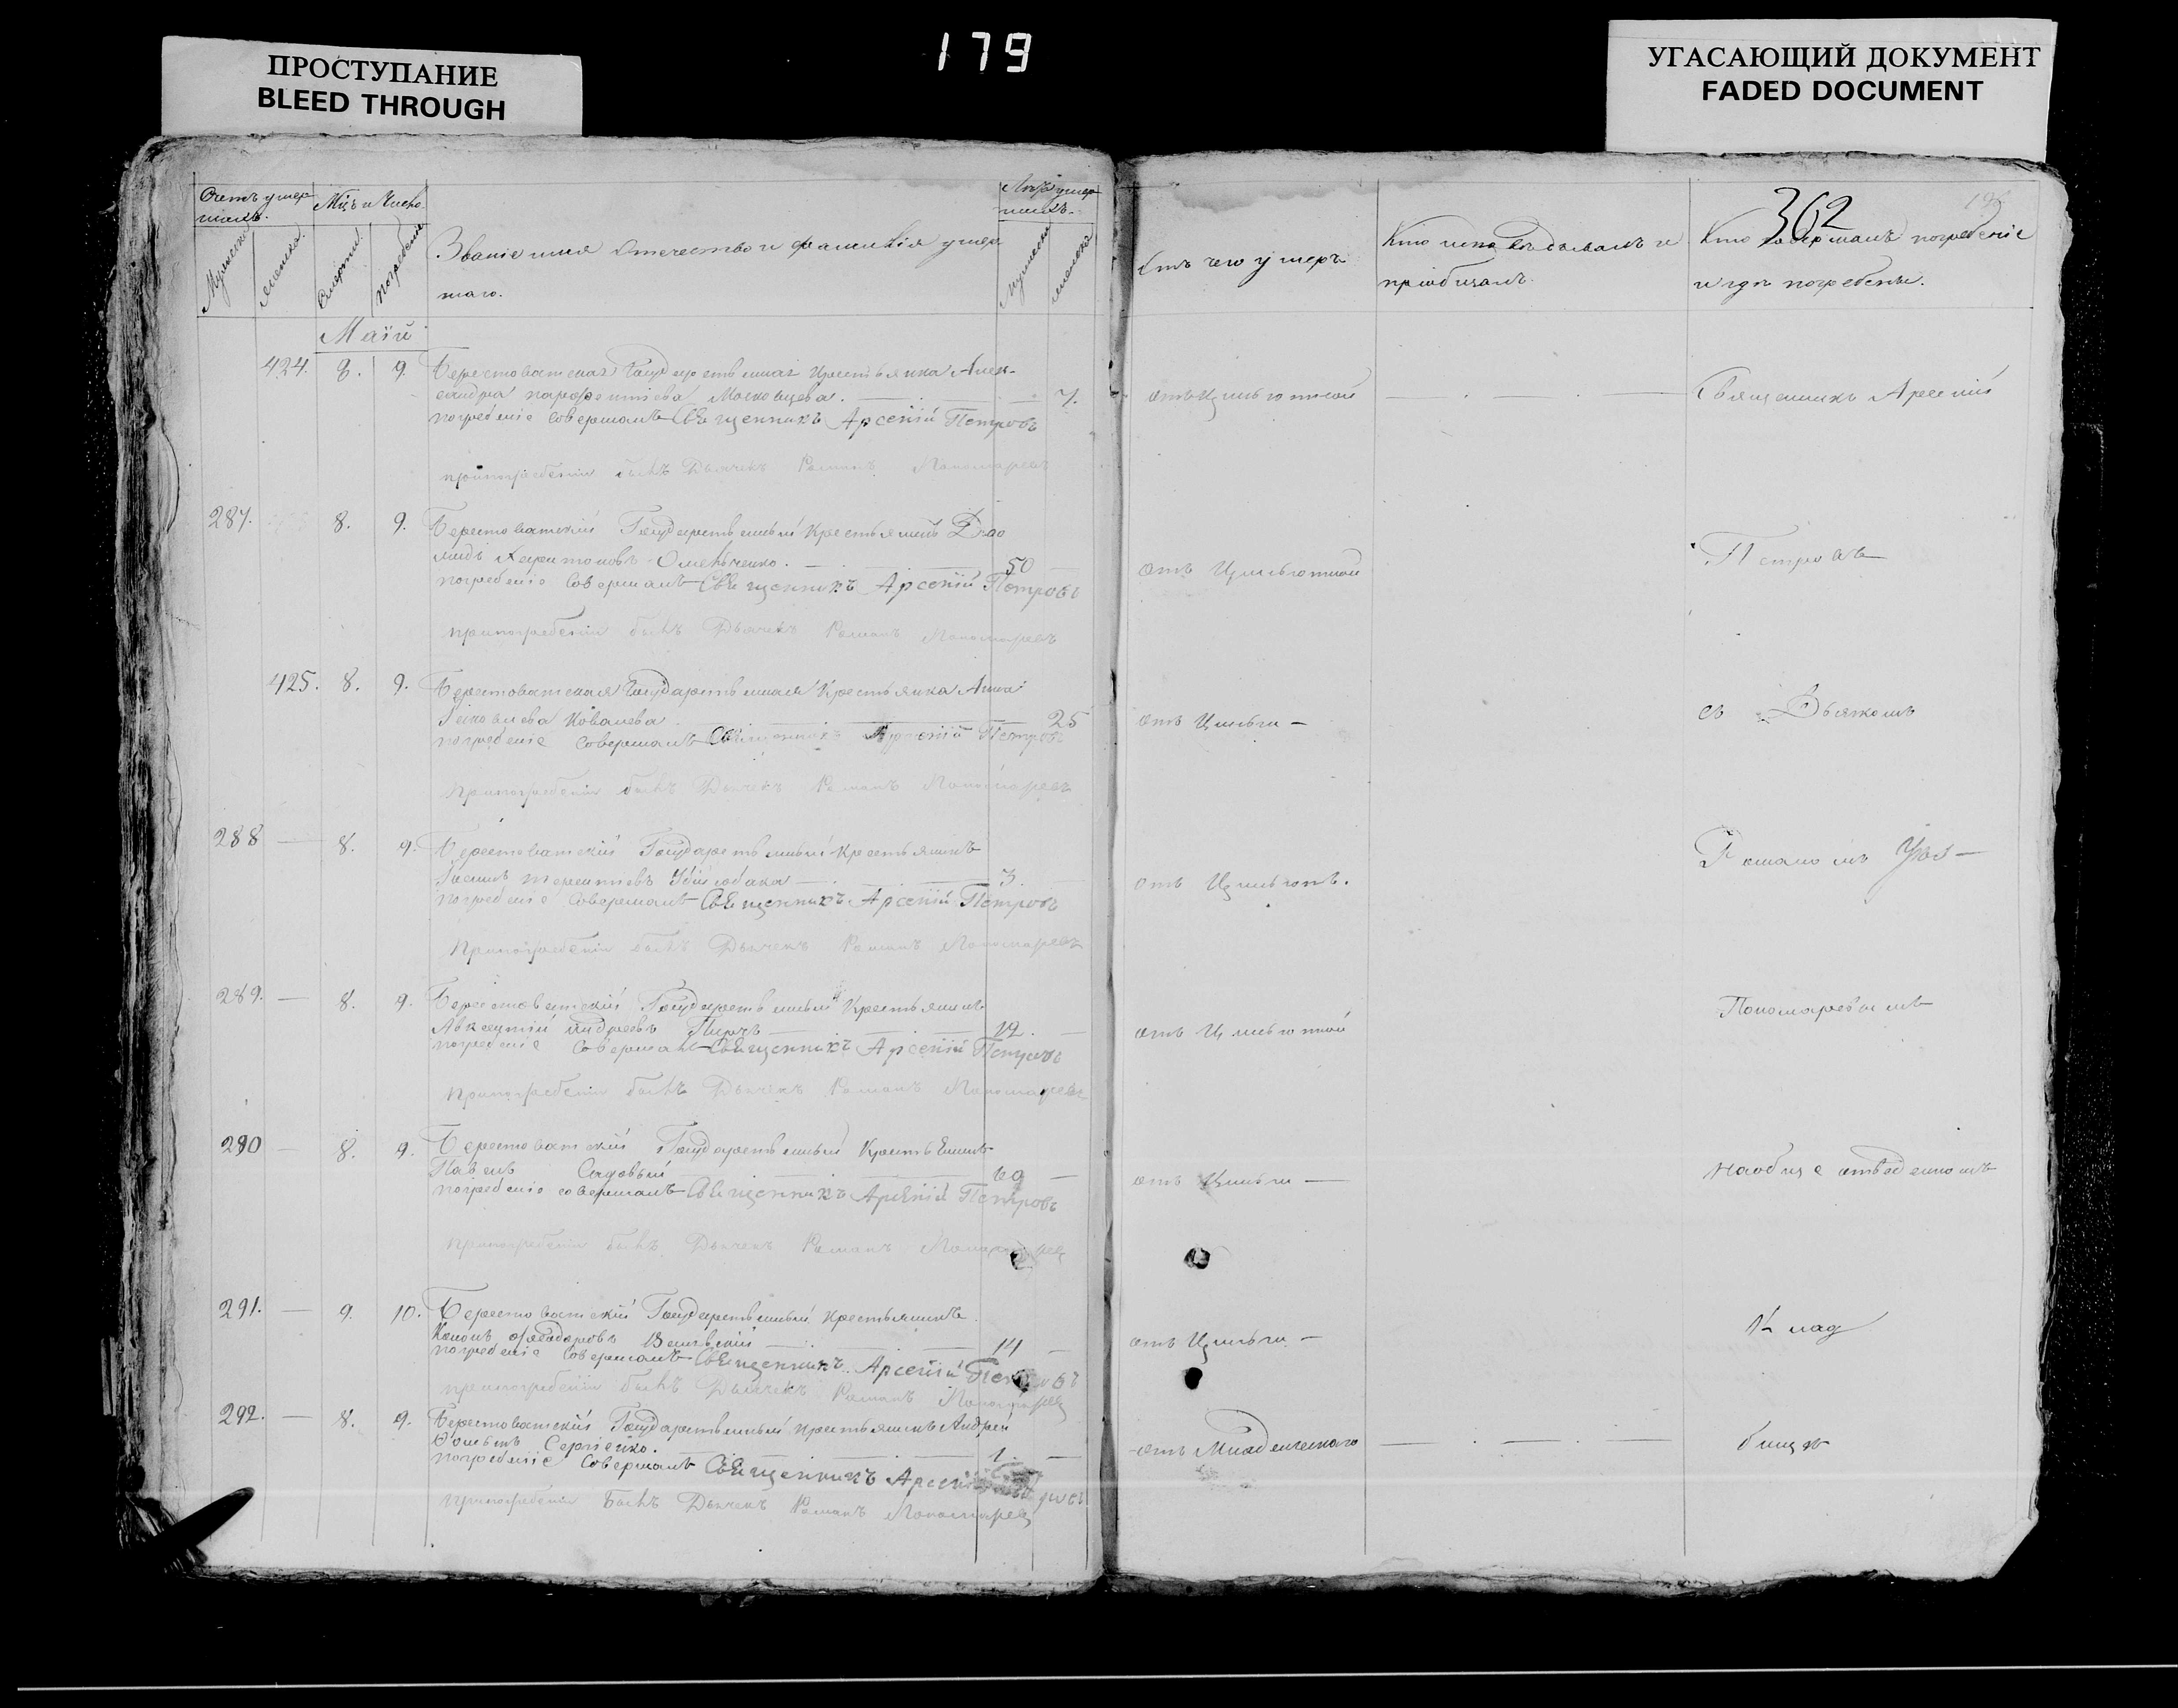 179
ПРОСТУПАНИЕ
BLEED THROUGH
УГАСАЮЩИЙ ДОКУМЕНТ
FADED DOCUMENT
362
Счетъ умер-
шихъ.
Мцъ и Число
Званіе имя отечество и фамилія умер-
шаго.
Лѣта умер-
шихъ.
Мужеска
женска.
Смерти.
погребенія
Мужеска
женска
Маій
424. 8. 9. Берестоватская Государственная крестьянка Алек-
сандра парфентіева Московцева. 7.
погребеніе совершалъ Священникъ Арсеній Петровъ
при погребеніи былъ Дьячекъ Романъ Пономаревъ
287. 8. 9. Берестоватскій Государственный крестьянинъ Діо
мидъ Харитоновъ Омельченко. 50
погребеніе Совершалъ Священникъ Арсеній Петровъ
при погребеніи былъ Дьячекъ Романъ Пономаревъ
425. 8. 9. Берестоватская Государственная Крестьянка Анна
Ковалева 25
погребеніе Совершалъ Священникъ Арсеній Петровъ
При погребеніи былъ Дьячекъ Романъ Пономаревъ
288 — 8. 9. Берестоватскій Государственный Крестьянинъ
терентіевъ Убійсобака 3.
погребеніе Совершалъ Священникъ Арсеній Петровъ
При погребеніи былъ Дьячекъ Романъ Пономаревъ
289. — 8. 9. Берестоватскій Государственный Крестьянинъ
Авксентій Андреевъ 12. —
погребеніе Совершалъ Священникъ Арсеній Петровъ
При погребеніи былъ Дьячекъ Романъ Пономаревъ
290 — 8. 9. Берестоватскій Государственный Крестьянинъ
Павелъ Садовый 69 —
погребеніе совершалъ Священникъ Арсеній Петровъ
При погребеніи былъ Дьячекъ Романъ
291. — 9. 10. Берестоватскій Государственный крестьянинъ
Кононъ 14 —
погребеніе Совершалъ Священникъ Арсеній Петровъ
при погребеніи былъ Дьячекъ Романъ Пономаревъ
292. — 8. 9. Берестоватскій Государственный крестьянинъ Андрей
Сергіенко. 1. —
погребеніе Совершалъ Священникъ Арсеній
При погребеніи Былъ Дьячекъ Романъ Пономаревъ
Отъ чего умеръ
Кто исповѣдывалъ и
пріобщалъ.
Кто совершалъ погребеніе
и гдѣ погребены.
отъ Цынготной — Священникъ Арсеній
отъ Цынготной Петровъ
отъ Цынги — съ Дьячкомъ
отъ Цынготн. Романомъ
отъ Цынготной Пономаревымъ
отъ Цынги — На обще отведенномъ
отъ Цынги — Клад
отъ Младенческаго — бищѣ